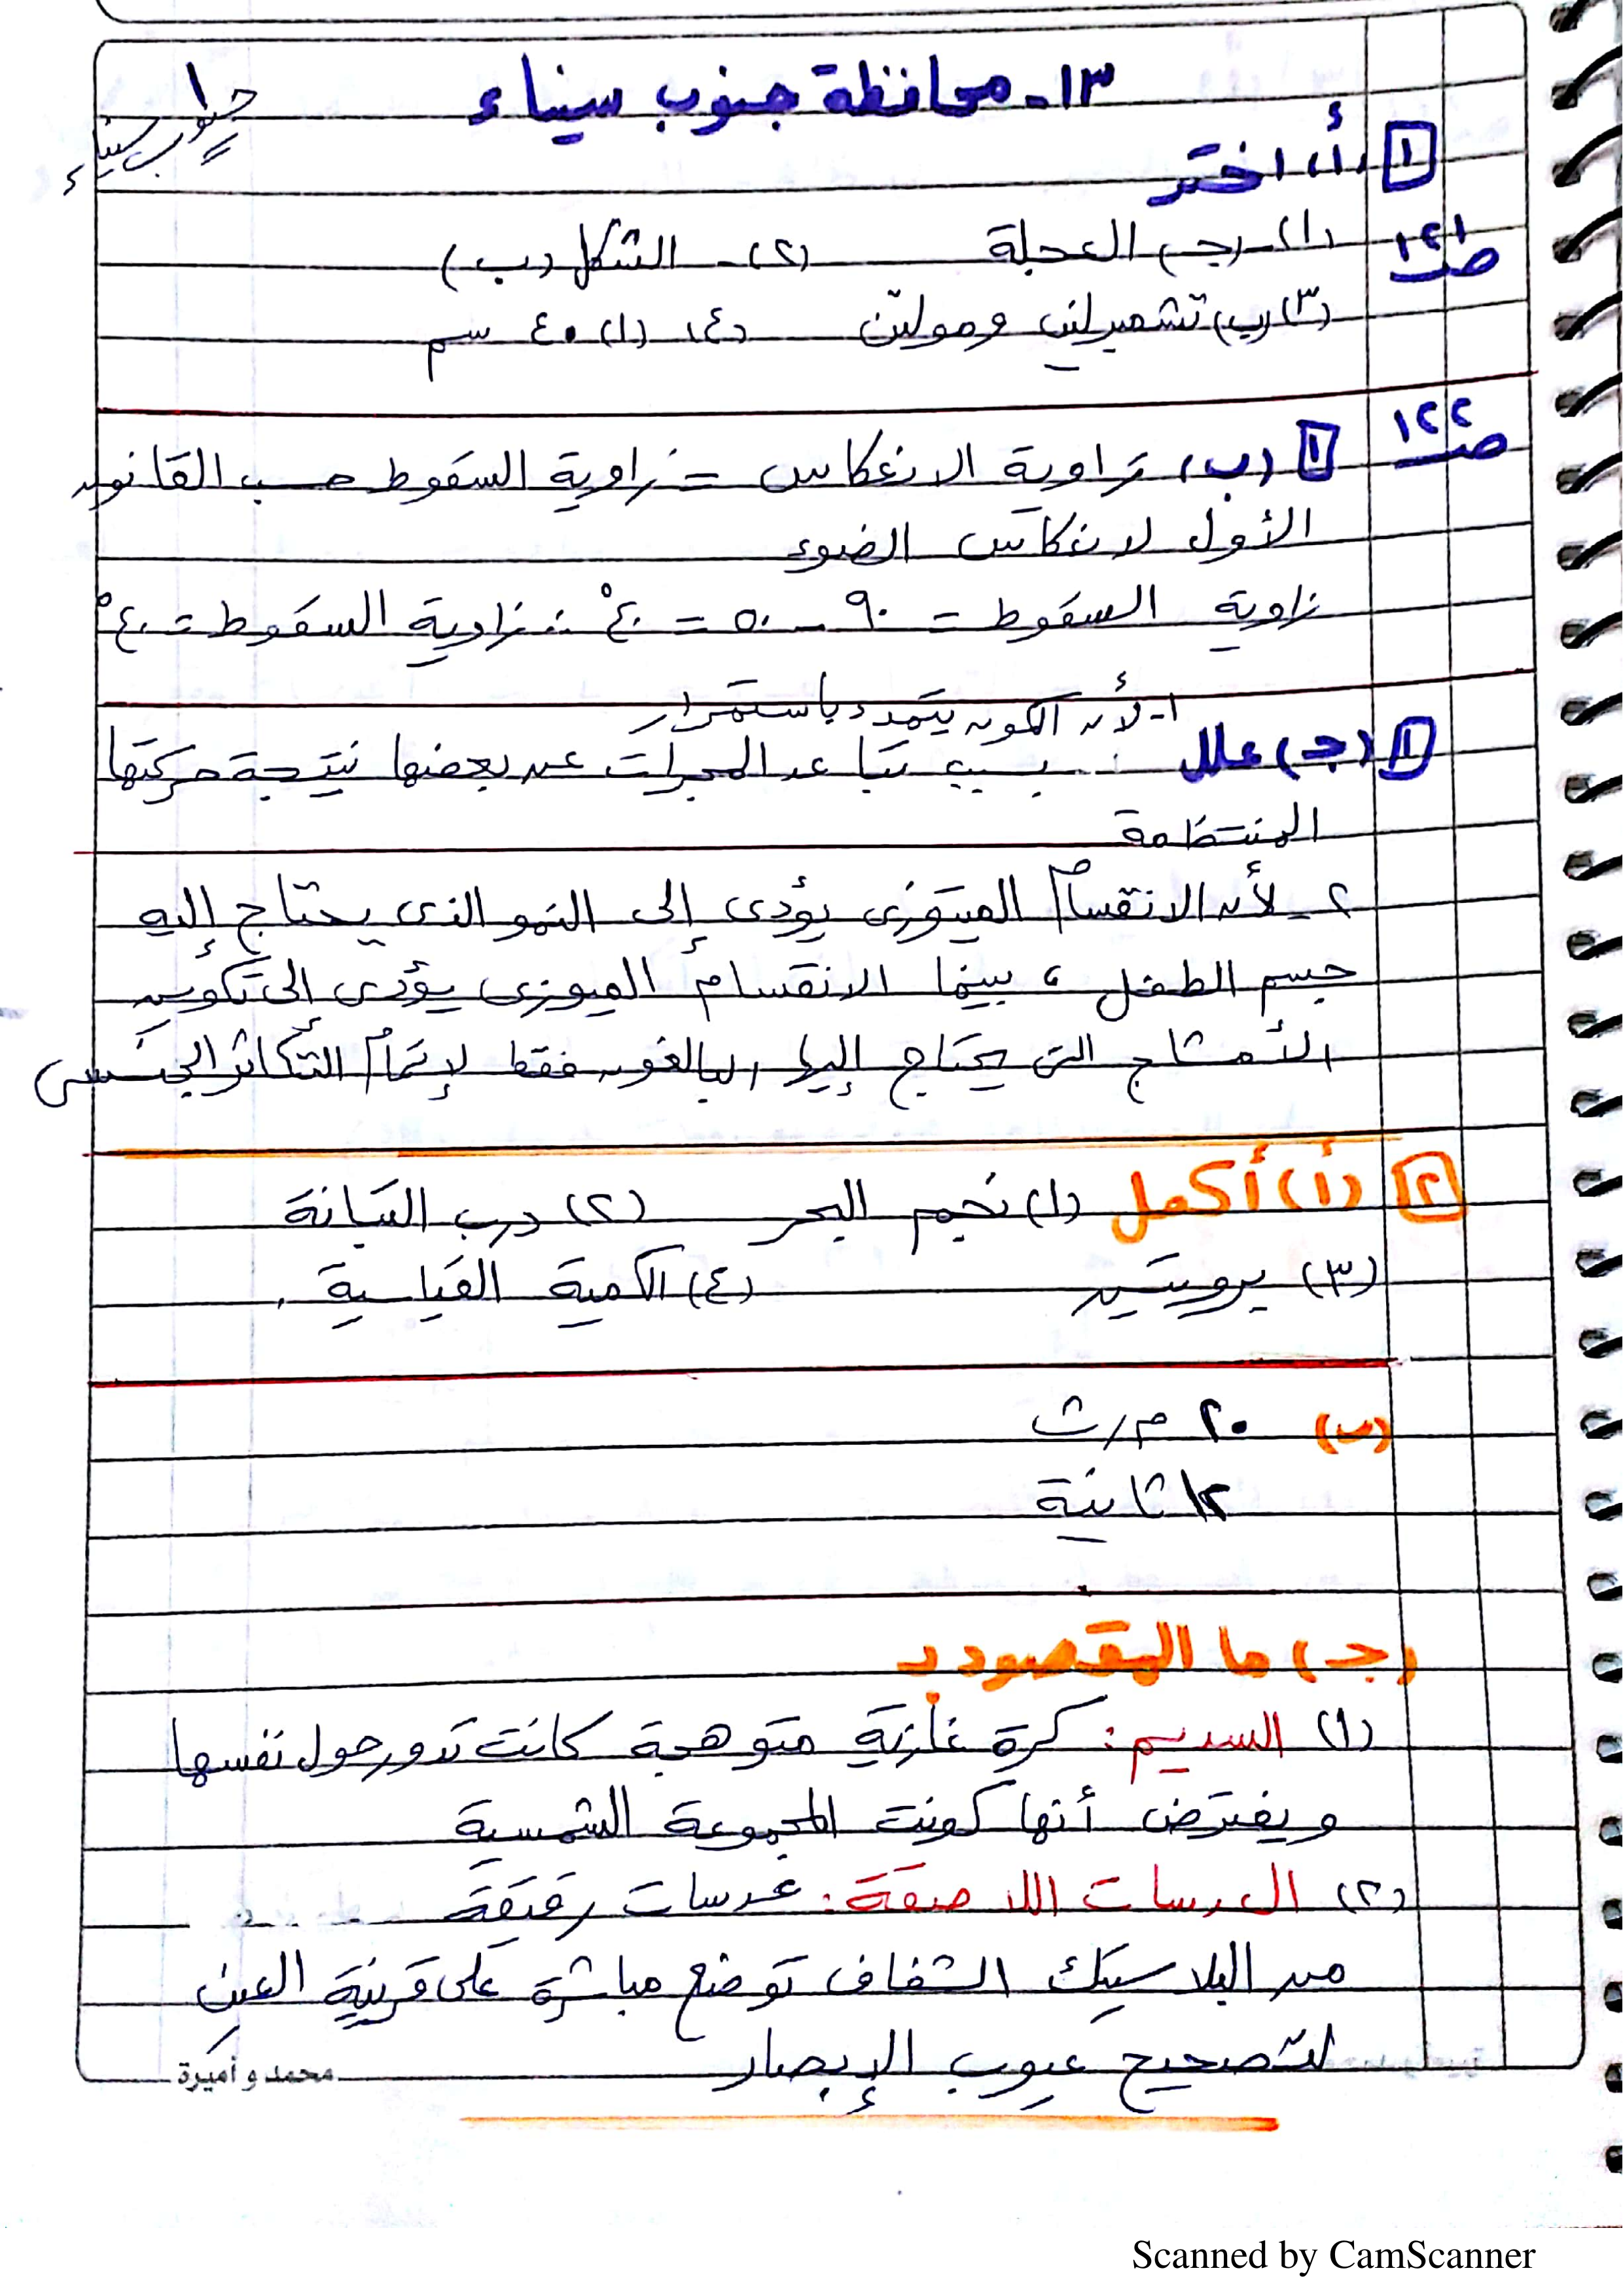 ١٣- محافظة جنوب سيناء
جنوب سيناء ١
١ (أ) اختر
ص ١٢١
(١) - (جـ) العجلة (٢) - الشكل (ب)
(٣) (ب) تشمبرلين ومولتن (٤) (١) ٤٠ سم
ص ١٢٢
١ (ب) زاوية الانعكاس = زاوية السقوط حسب القانون
الأول لانعكاس الضوء
زاوية السقوط = ٩٠ - ٥٠ = ٤٠° ∴ زاوية السقوط = ٤٠°
١- لأن الكون يتمدد باستمرار
١ (جـ) علل بسبب تباعد المجرات عن بعضها نتيجة حركتها
المنتظمة
٢- لأن الانقسام الميتوزى يؤدى إلى النمو الذى يحتاج إليه
جسم الطفل ، بينما الانقسام الميوزى يؤدى إلى تكوين
الأمشاج التى يحتاج إليها البالغون فقط لإتمام التكاثر الجنسى
٢ (أ) أكمل (١) نجم البحر (٢) درب التبانة
(٣) بروتين (٤) الكمية القياسية .
(ب) ٢٠ م/ث
١٢ ثانية
(جـ) ما المقصود بـ
(١) السديم : كرة غازية متوهجة كانت تدور حول نفسها
ويفترض أنها كونت المجموعة الشمسية
(٢) العدسات اللاصقة : عدسات رقيقة
من البلاستيك الشفاف توضع مباشرة على قرنية العين
لتصحيح عيوب الإبصار
محمد و أميرة
Scanned by CamScanner